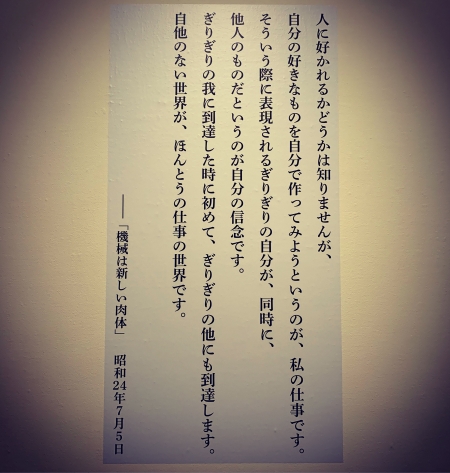 人に好かれるかどうかは知りませんが、
自分の好きなものを自分で作ってみようというのが、私の仕事です。
そういう際に表現されるぎりぎりの自分が、同時に、
他人のものだというのが自分の信念です。
ぎりぎりの我に到達した時に初めて、ぎりぎりの他にも到達します。
自他のない世界が、ほんとうの仕事の世界です。
——「機械は新しい肉体」 昭和24年7月5日